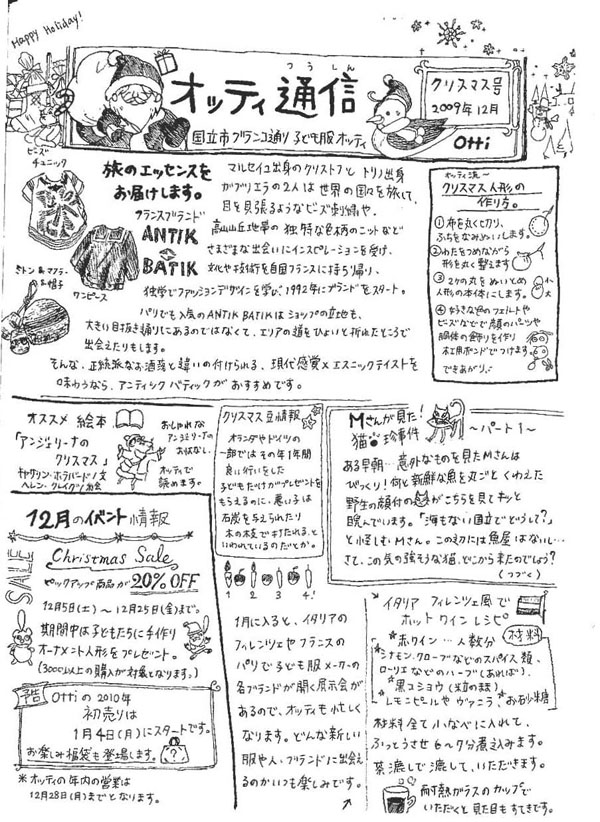 Happy Holiday!
つうしん
オッティ通信
国立市ブランコ通り 子ども服 オッティ
クリスマス号
2009年12月
Otti
ビーズ
チュニック
ワンピース
旅のエッセンスを
お届けします。
フランスブランド
ANTIK
BATIK
マルセイユ出身のクリストフと トリノ出身
ガブリエラの2人は 世界の国々を旅して、
目を見張るようなビーズ刺繍や、
高山丘地帯の 独特な色柄のニットなど
さまざまな出会いにインスピレーションを受け、
文化や技術を自国フランスに持ち帰り、
独学でファッションデザインを学び、1992年にブランドをスタート。
パリでも人気のANTIK BATIKは ショップの立地も、
大きい目抜き通りにあるのではなくて、エリアの道をひょいと折れたところで
出会えたりもします。
そんな、正統派なお洒落と違いの付けられる、現代感覚×エスニックテイストを
味わうなら、アンティックバティックが おすすめです。
オッティ流〜
クリスマス人形の
作り方。
①布を丸く切り、
ふちをなみぬいします。
②わたをつめながら
形を丸く整えます
③2ケの丸を ぬいとめ
人形の本体にします。
④好きな色のフェルトや
ビーズなどで顔のパーツや
胴体の飾りを作り
木工用ボンドでつけます。
できあがり♪
オススメ 絵本
「アンジェリーナの
クリスマス」
キャサリン・ホラバード/文
ヘレン・クレイグ/絵
おしゃれな
アンジェリーナの
おはなし。
オッティで
読めます。
クリスマス豆情報
オランダやドイツの
一部では その年1年間
良い行いをした
子どもだけがプレゼントを
もらえるのに、悪い子は
石炭を与えられたり
木の枝でぶたれる、と
いわれているのだとか。
1 2 3 4
Mさんが見た!
猫珍事件
〜パート1〜
ある早朝…意外なものを見たMさんは
びっくり!何と新鮮な魚を丸ごとくわえた
野生の顔付の がこちらを見てキッと
睨んでいます。「海もない国立でどうして?」
と怪しむMさん。この辺には魚屋はないし…
さて、この気の強そうな猫、どこから来たのでしょう?
(つづく)
12月のイベント情報
SALE
Christmas Sale
ピックアップ商品が20%OFF
12月5日(土)〜12月25日(金)まで。
期間中は子どもたちに手作り
オーナメント人形をプレゼント。
(3000以上の購入が対象となります。)
予告
Ottiの2010年
初売りは
1月4日(月)にスタートです。
お楽しみ福袋も登場します。
※オッティの年内の営業は
12月28日(月)までとなります。
1月に入ると、イタリアの
フィレンツェやフランスの
パリで子ども服メーカーの
各ブランドが開く展示会が
あるので、オッティも忙しく
なります。どんな新しい
服や人、ブランドに出会え
るのかいつも楽しみです。
イタリア フィレンツェ風で
ホットワインレシピ
材料
赤ワイン…人数分
シナモン、クローブなどのスパイス類、
ローリエなどのハーブ(あれば)、
黒コショウ(粒のまま)
レモンピールや ヴァニラ、お砂糖
材料全て小なべに入れて、
ふっとうさせ6〜7分煮込みます。
茶漉しで漉して、いただきます。
耐熱ガラスのカップで
いただくと見た目もすてきです。